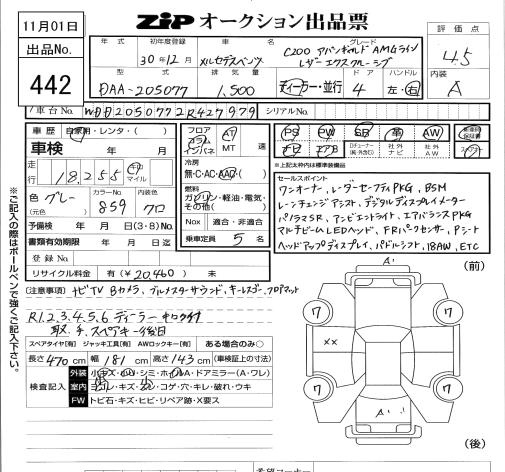 11月01日
ZIP オークション出品票
出品No.
442
年式
初年度登録
車名
グレード
評価点
30年12月
メルセデスベンツ
C200 アバンギャルド AMGライン
レザーエクスクルーシブ
4.5
型式
排気量
ドア
ハンドル
内装
DAA-205077
1,500
ディーラー・並行
4
左・右
A
車台No.
WDD2050772R427979
シリアルNo.
車歴 自家用・レンタ・( )
フロア
コラム
インパネ
AT
MT
速
PS PW SR 革 AW
車検 年 月
冷房
無・C・AC・AAC
走行 18,255 キロ マイル
※上記太枠は標準装備品
色 グレー
(元色)
カラーNo.
859
内装色
クロ
燃料
ガソリン・軽油・電気・
その他( )
セールスポイント
ワンオーナー、レーダーセーフティPKG、BSM
レーンチェンジアシスト、デジタルディスプレイメーター
パノラマSR、アンビエントライト、エアバランスPKG
マルチビームLEDヘッド、FRパークセンサー、Pシート
ヘッドアップディスプレイ、パドルシフト、18AW、ETC
予備検 年 月 日(3・8)No.
書類有効期限 年 月 日迄
Nox 適合・非適合
登録No.
乗車定員 5 名
リサイクル料金 有(¥20,460) 未
(注意事項) ナビTV Bカメラ、ブルメスターサウンド、キーレスゴー、フロアマット
R1.2.3.4.5.6 ディーラーキロク付
取、手、スペアキー後日
スペアタイヤ[有] ジャッキ工具[有] AWロックキー[有] ある場合のみ○
長さ 470 cm 幅 181 cm 高さ 143 cm (車検証上の寸法)
検査記入
外装 小キズ・凹・シミ・ホイルA・ドアミラー(A・ワレ)
室内 ヨゴレ・キズ・スレ・コゲ・穴・キレ・破れ・ウキ
FW トビ石・キズ・ヒビ・リペア跡・X要ス
※ご記入の際はボールペンで強くご記入下さい。
(前)
A'
××
7
7
7
7
A'
(後)
希望コーナー